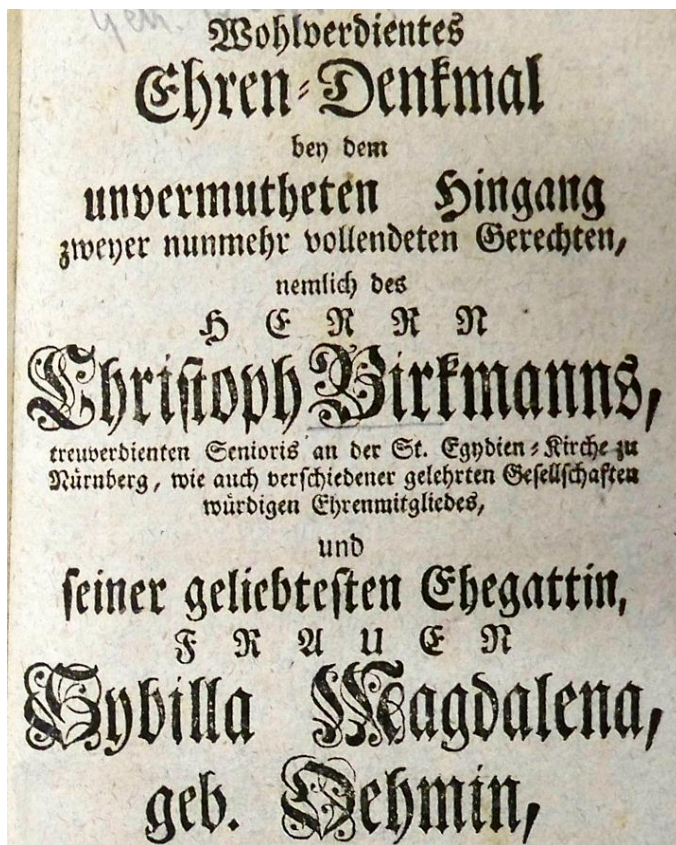 Wohlverdientes
Ehren-Denkmal
bey dem
unvermutheten Hingang
zweyer nunmehr vollendeten Gerechten,
nemlich des
HERRN
Christoph Birkmanns,
treuverdienten Senioris an der St. Egydien-Kirche zu
Nürnberg, wie auch verschiedener gelehrten Gesellschaften
würdigen Ehrenmitgliedes,
und
seiner geliebtesten Ehegattin,
FRAUEN
Sybilla Magdalena,
geb. Oehmin,